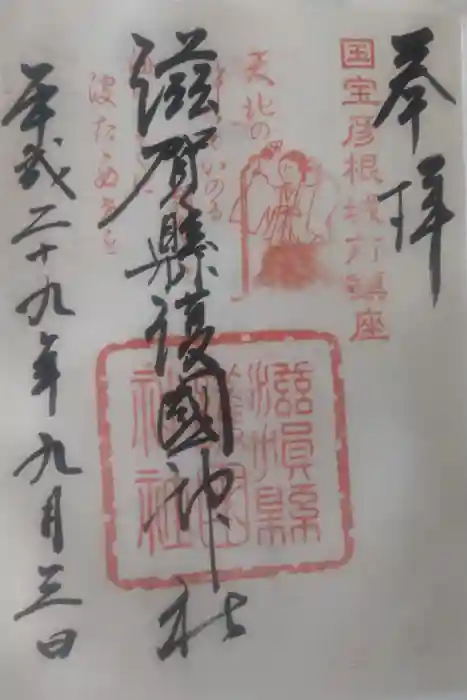 奉拝
国宝彦根城前鎮座
天北の
滋賀縣護國神社
滋賀縣護國神社
平成二十九年九月三日